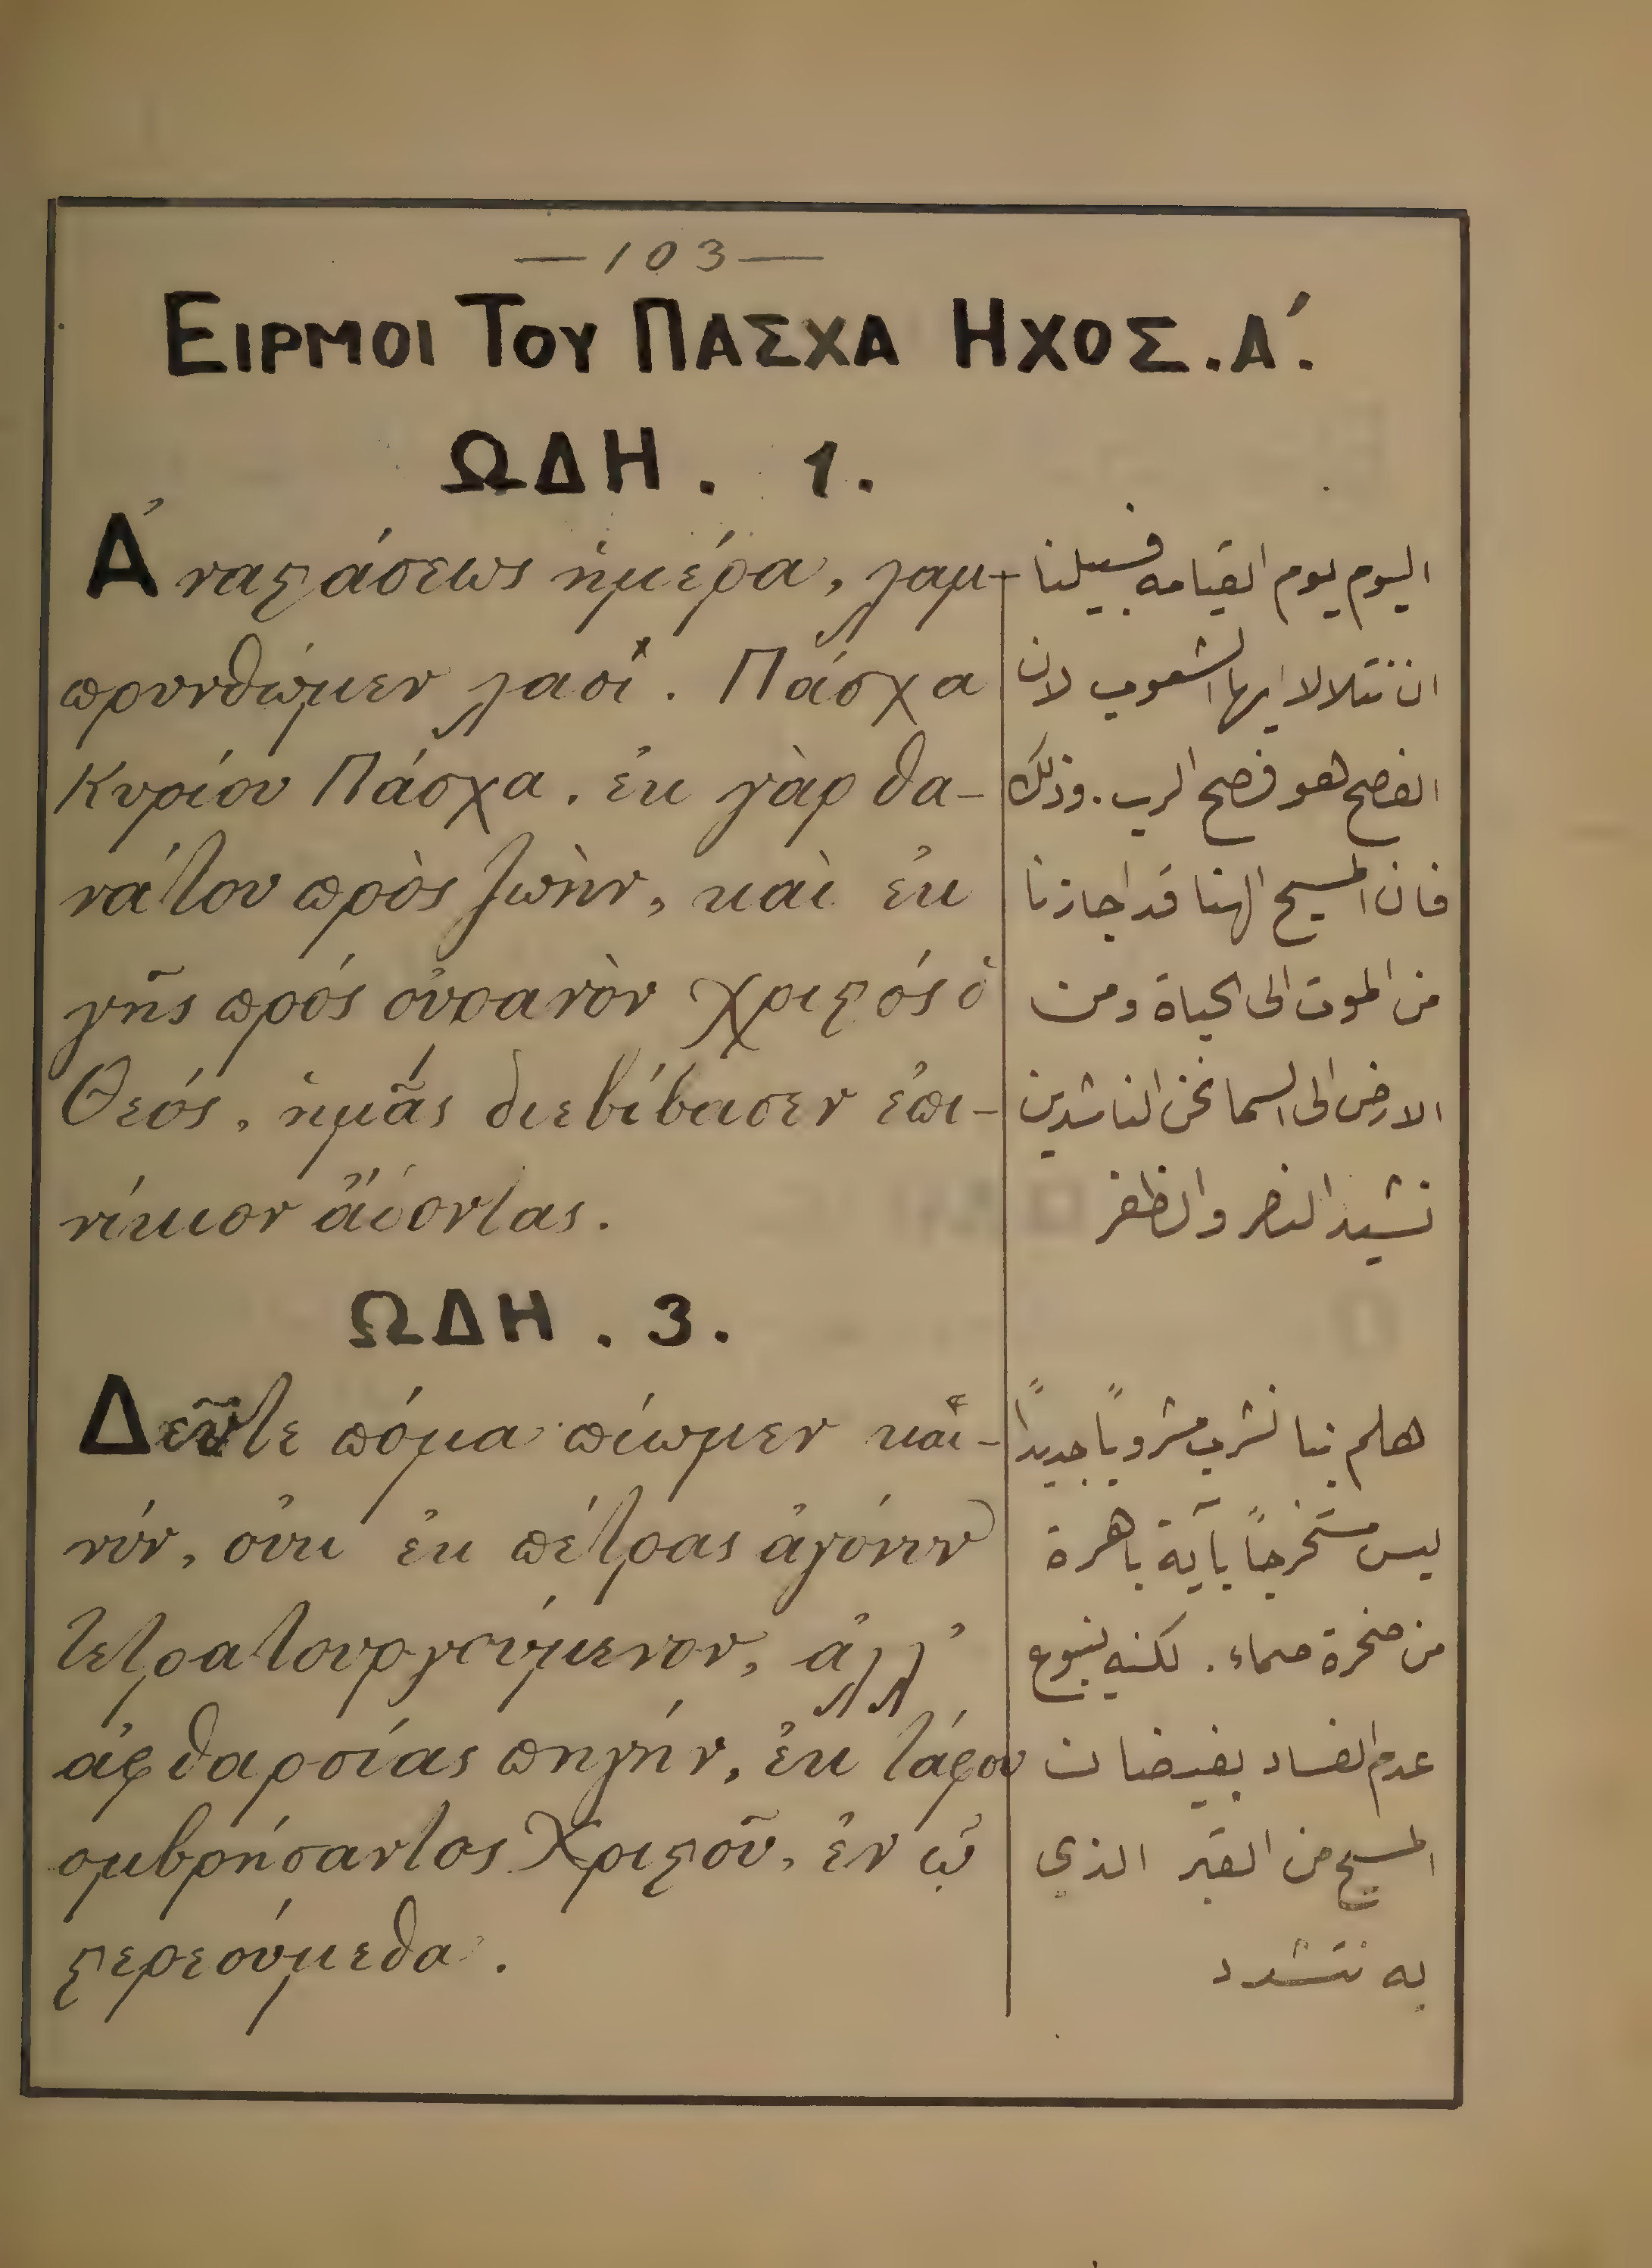 —103—
ΕΙΡΜΟΙ ΤΟΥ ΠΑΣΧΑ ΗΧΟΣ.Α΄.
ΩΔΗ. 1.
Ἀναϛάσεως ἡμέρα, λαμ-
πρυνθῶμεν λαοί. Πάσχα
Κυρίου Πάσχα. ἐκ γὰρ θα-
νάτου πρὸς ζωὴν, καὶ ἐκ
γῆς πρός οὐρανὸν Χριϛός ὁ
Θεός, ἡμᾶς διεβίβασεν ἐπι-
νίκιον ἄδοντας.
اليوم يوم القيامه فسبيلنا
ان نتلالا ايها الشعوب لان
الفصح هو فصح الرب. وذلك
فان المسيح الهنا قد اجازنا
من الموت الى الحياة ومن
الارض الى السما نحن الناشدين
نشيد النصر والظفر
ΩΔΗ. 3.
Δεῦτε πόμα πίωμεν και-
νόν, οὐκ ἐκ πέτρας ἀγόνου
τετρατουργούμενον, ἀλλ᾽
ἀφθαρσίας πηγήν, ἐκ τάφου
ομβρήσαντος Χριϛοῦ, ἐν ᾧ
ϛερεούμεθα.
هلم بنا نشرب مشروباً جديداً
ليس مستخرجاً بآية باهرة
من صخرة صماء. لكنه ينبوع
عدم الفساد بفيضان
المسيح من القبر الذي
به نتشدد